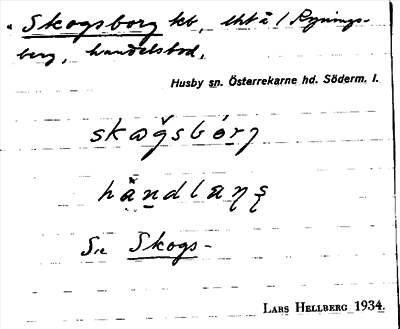 Skogsborg kb, eht å 1 Rynings-
berg, handelsbod.
Husby sn. Österrekarne hd. Söderm. l.
skogsbórj
handlaŋş
Se Skogs-
LARS HELLBERG 1934.